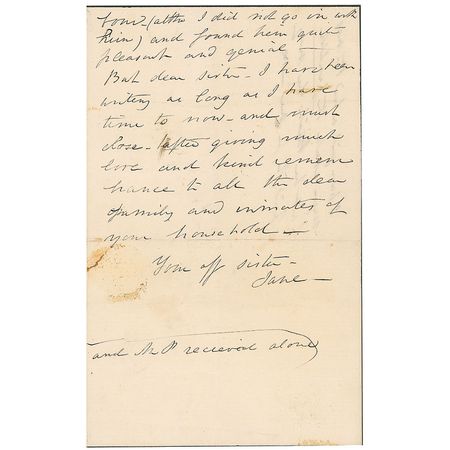 (altho I did not go in with
him) and found him quite
pleasant and genial -
But dear sister - I have been
writing as long as I have
time to now - and must
close - after giving much
love and kind remem
brance to all the dear
family and inmates of
your household -
Your aff sister -
Jane -
and Mr P recieved alone)